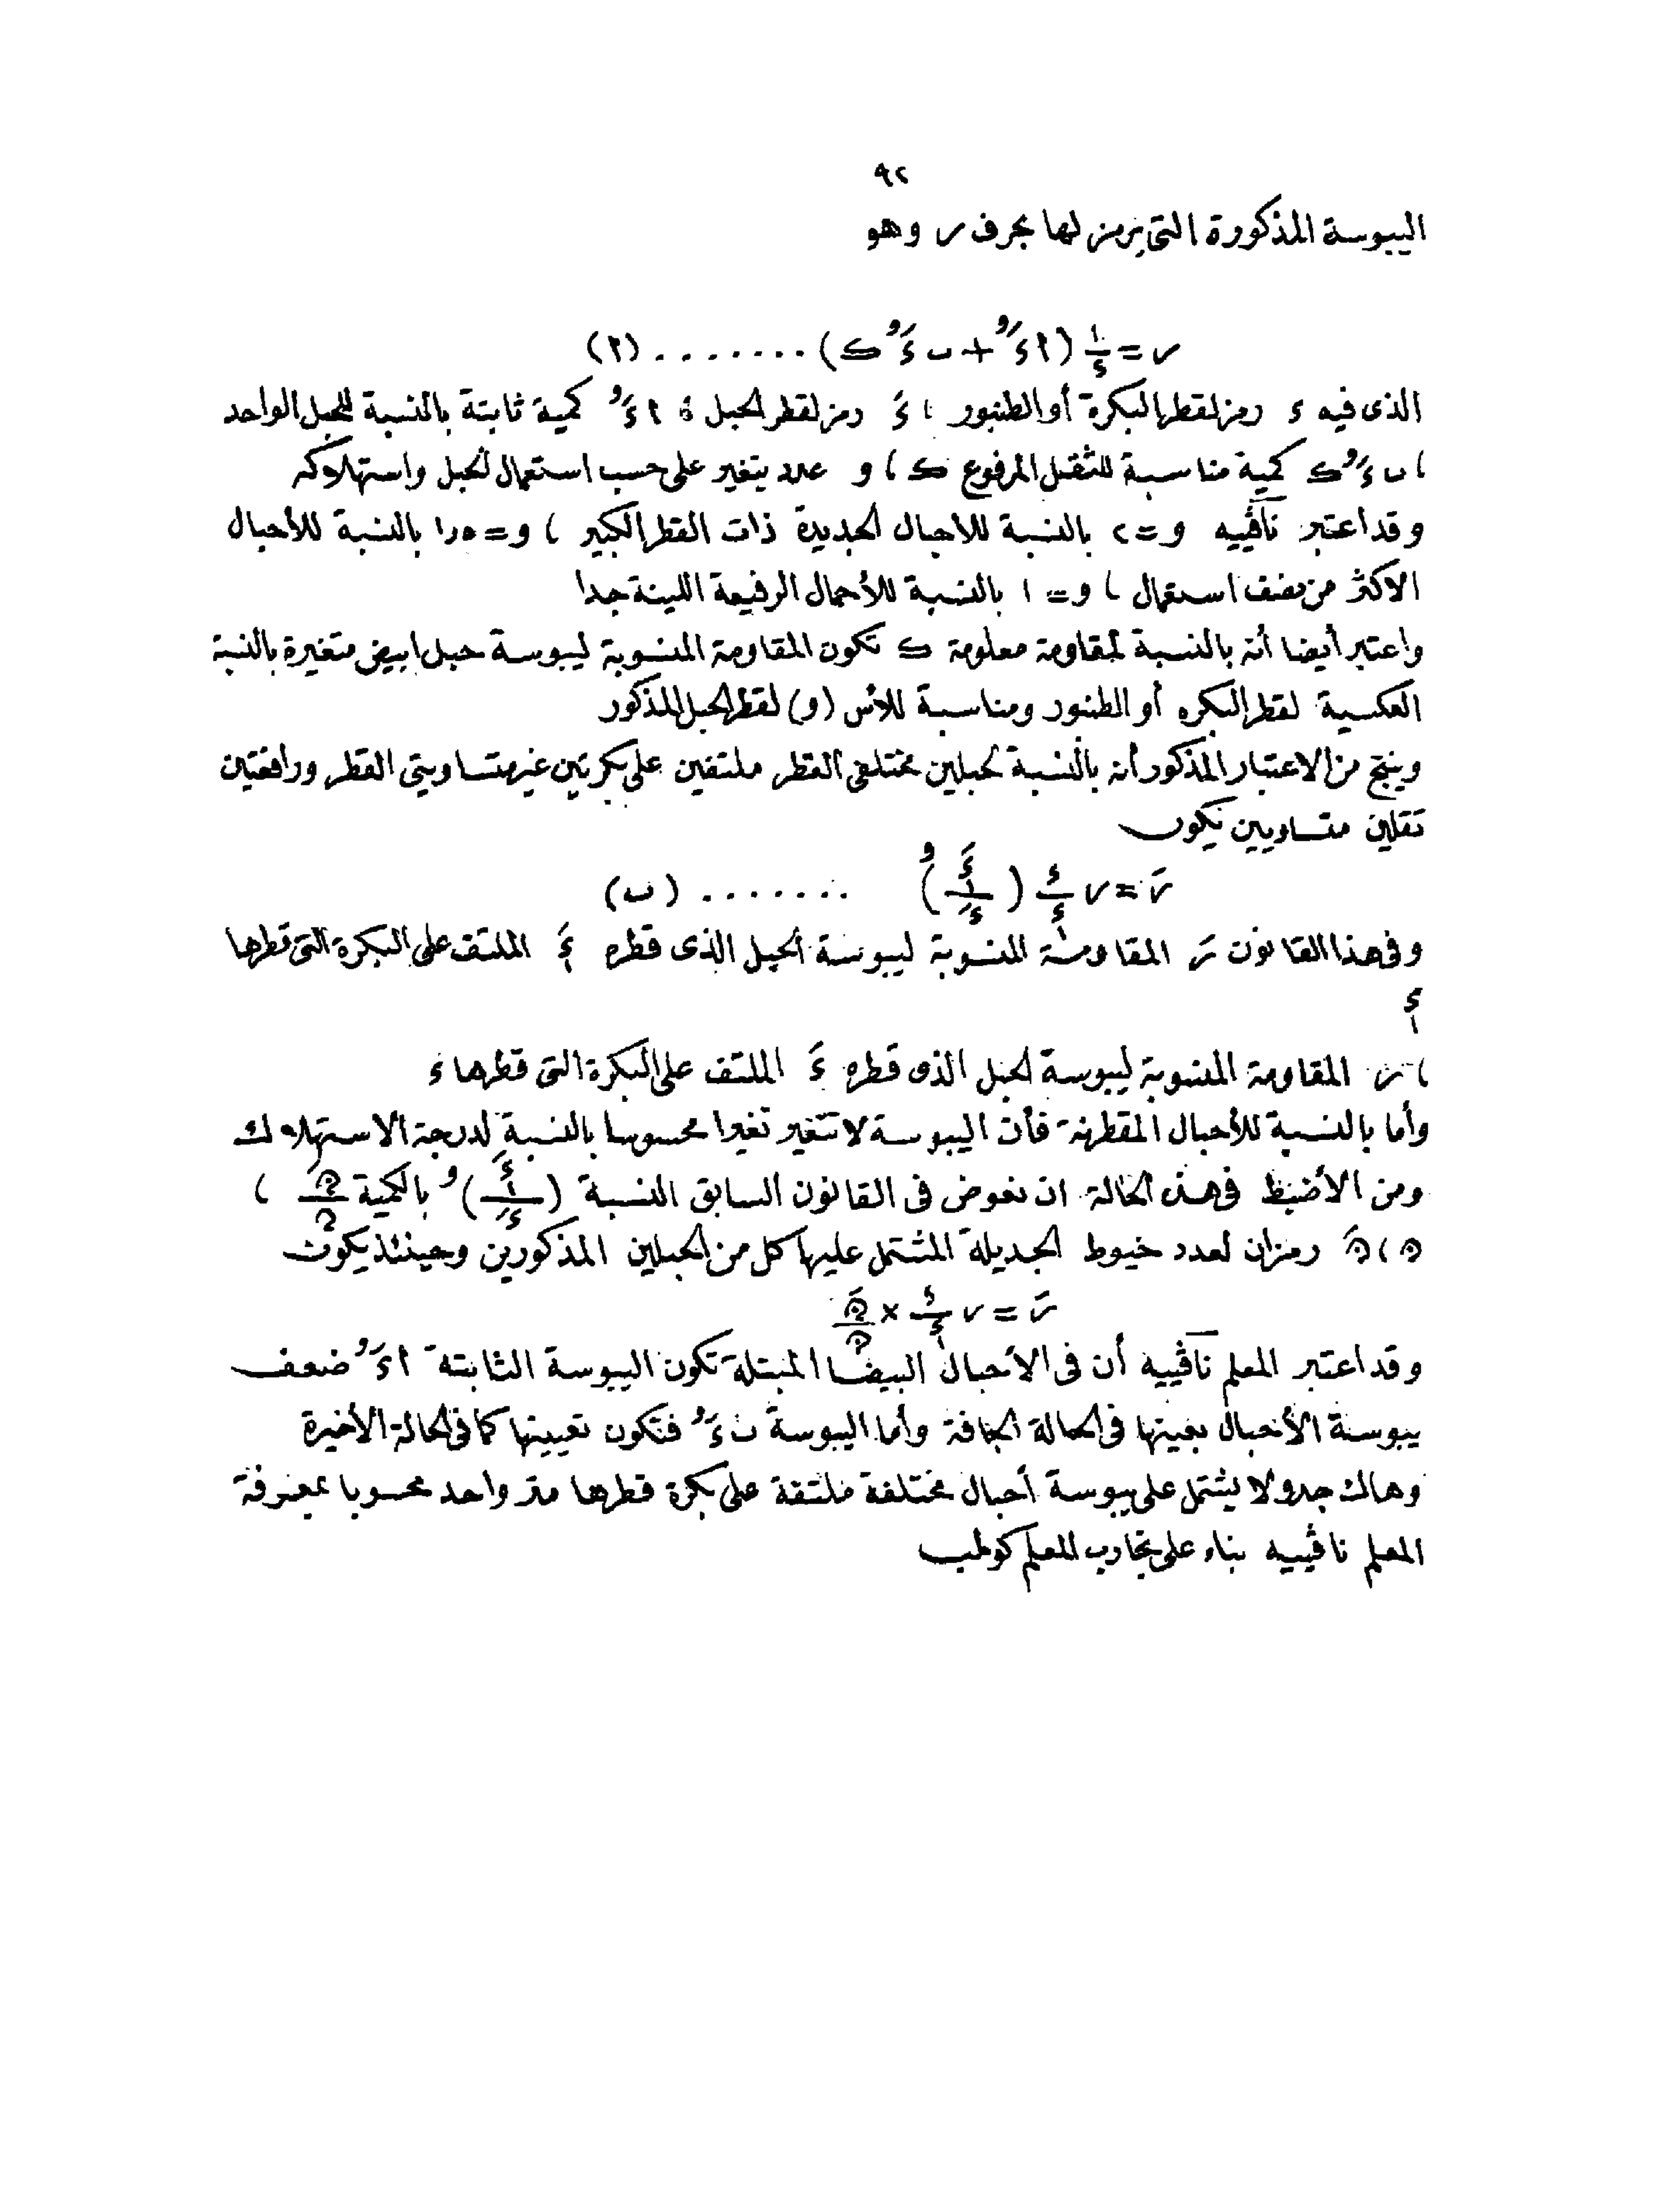 ٩٢
اليبوسة المذكورة التى يرمز لها بحرف ر وهو
ر = ١/ء (ا ءَ^و + ب ءَ^و ك) ........ (ا)
الذى فيه ء رمز لقطر البكرة أو الطنبور ، ءَ رمز لقطر الحبل ، ا ءَ^و كمية ثابتة بالنسبة للحبل الواحد
، ب ءَ^و ك كمية مناسبة للثقل المرفوع ك ، و عدد يتغير على حسب استعمال الحبل واستهلاكه
وقد اعتبر ناڤييه و = ٢ بالنسبة للاحبال الجديدة ذات القطر الكبير ، و = ١٫٥ بالنسبة للأحبال
الاكثر من نصف استعمال ، و = ١ بالنسبة للأحبال الرفيعة اللينة جدا
واعتبر أيضا أنه بالنسبة لمقاومة معلومة ك تكون المقاومة المنسوبة ليبوسة حبل ابيض متغيرة بالنسبة
العكسية لقطر البكره أو الطنبور ومناسبة للأس (و) لقطر الحبل المذكور
وينتج من الاعتبار المذكور أنه بالنسبة لحبلين مختلفى القطر ملتفين على بكرتين غير متساويتى القطر ورافعتين
ثقلين متساويين يكون
رَ = ر ء/ءٖ (ءَٖ/ءَ)^و ........ (ب)
وفى هذا القانون رَ المقاومة المنسوبة ليبوسة الحبل الذى قطره ءَٖ الملتف على البكرة التى قطرها
ءٖ
، ر المقاومة المنسوبة ليبوسة الحبل الذى قطره ءَ الملتف على البكرة التى قطرها ء
وأما بالنسبة للأحبال المقطرنة فأن اليبوسة لا تتغير تغيرا محسوسا بالنسبة لدرجة الاستهلاك
ومن الأضبط فى هذه الحالة ان نعوض فى القانون السابق النسبة (ءَٖ/ءَ)^و بالكمية نَ/ن ،
ن ، نَ رمزان لعدد خيوط الجديلة المشتمل عليها كل من الحبلين المذكورين وحينئذ يكون
رَ = ر ء/ءٖ × نَ/ن
وقد اعتبر المعلم ناڤييه أن فى الأحبال البيضا المبتلة تكون اليبوسة الثابتة ا ءَ^و ضعف
يبوسة الأحبال بعينها فى الحالة الجافة وأما اليبوسة ب ءَ^و فتكون تعيينها كما فى الحالة الأخيرة
وهاك جدولا يشتمل على يبوسة أحبال مختلفة ملتفة على بكرة قطرها متر واحد محسوبا بمعرفة
المعلم ناڤييه بناء على تجارب المعلم كولمب